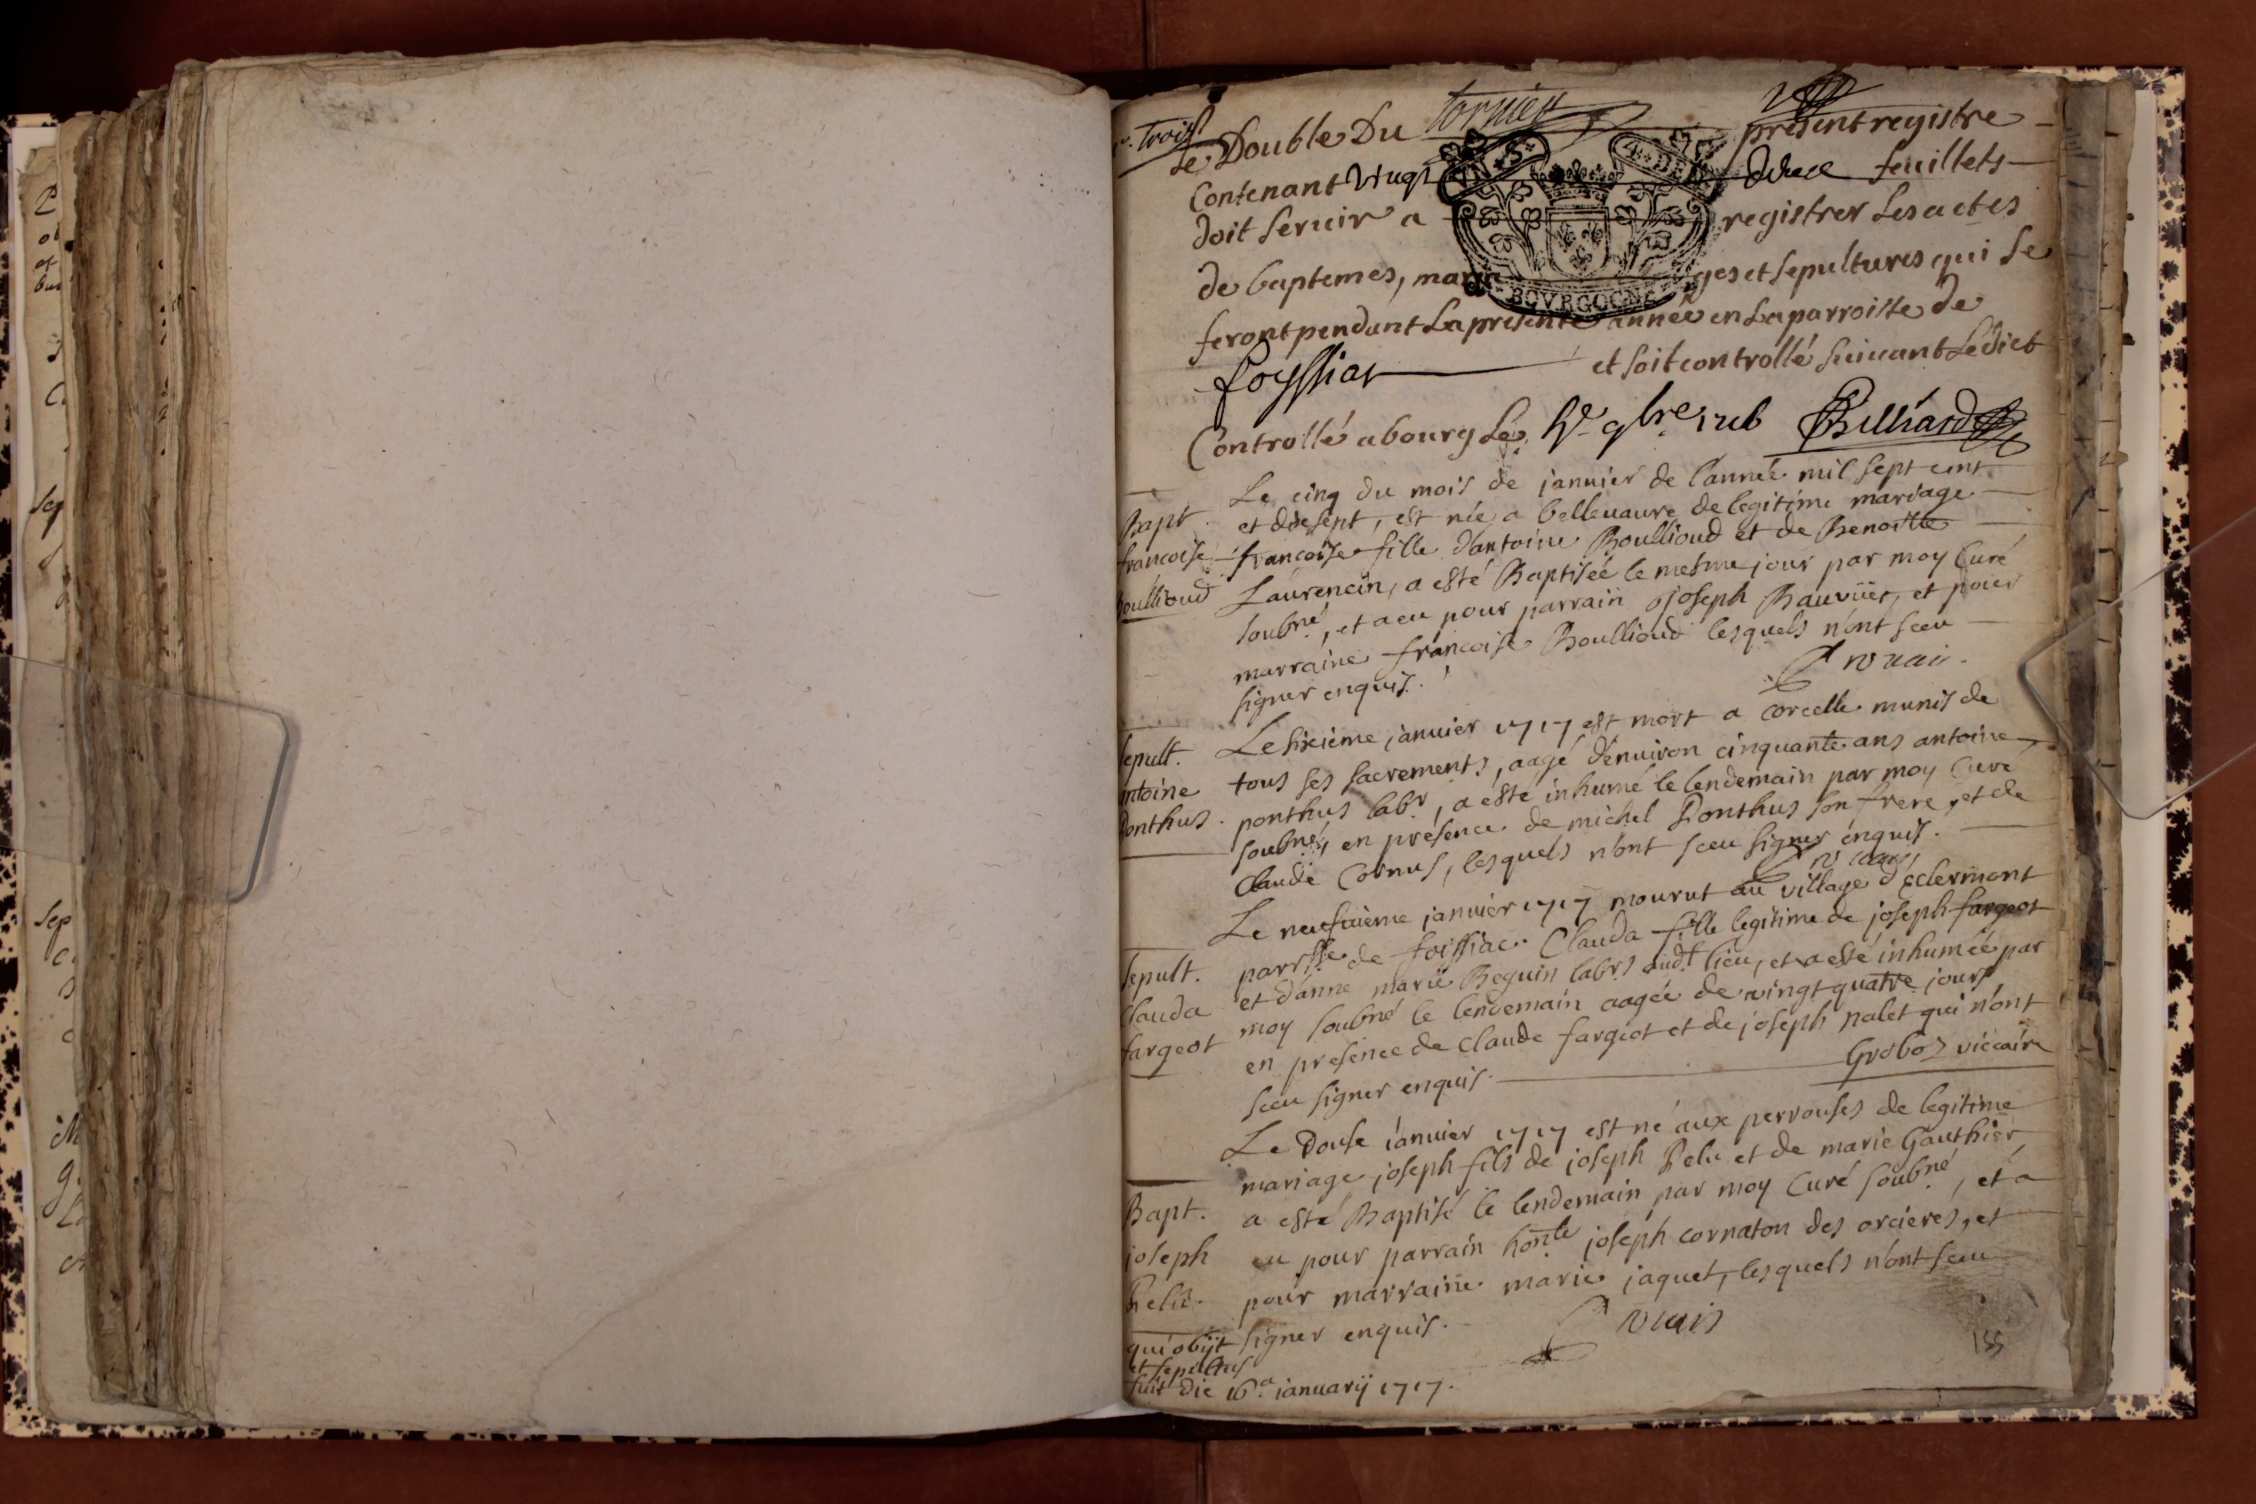 Le Double Du présent registre
Contenant vingt feuillets
doit servir a registrer Les actes
de baptemes, maria ges et sepultures qui se
feront pendant La presente année en La parroisse de
foyssiat et soit controllé suivant Ledict
BOVRGOGNE
Controllé a bourg Le 9bre Billiard
Bapt.
francoise
boullioud
Le cinq du mois de janvier de l'année mil sept cent
et disesept, est née a bellevavre de legitime mariage
francoise fille d'antoine Boullioud et de Benoitte
Laurencin, a esté Baptisée le mesme jour par moy Curé
soubné, et a eu pour parrain joseph Bauvüer, et pour
marraine francoise Boullioud lesquels n'ont sceu
signer enquis.
Sepult.
antoine
ponthus.
Le sixieme janvier 1717 est mort a corcelle munis de
tous ses sacrements, aagé d'environ cinquante ans antoine
ponthus labr, a esté inhumé le lendemain par moy Curé
soubné, en présence de michel Ponthus son frere, et de
Claude Cornus, lesquels n'ont sceu signer enquis.
Sepult.
Clauda
fargeot
Le neufvieme janvier 1717 mourut au village d'Eclermont
parrsse de foissiac Clauda fille legitime de joseph fargeot
et d'anne marie Beguin labrs audt lieu, et a esté inhumée par
moy soubné le lendemain aagée de vingt quatre jours
en presence de claude fargeot et de joseph palet qui n'ont
sceu signer enquis. Grobos viccaire
Bapt.
joseph
Pelu.
qui obijt
et sepultus
fuit die 16.a januarij 1717.
Le douse janvier 1717 est né aux perrouses de legitime
mariage joseph fils de joseph Pelu et de marie Gauthier
a esté Baptisé le lendemain par moy Curé soubné, et a
eu pour parrain honle joseph cornaton des orcieres, et
pour marraine marie jaquet, lesquels n'ont sceu
signer enquis.
155